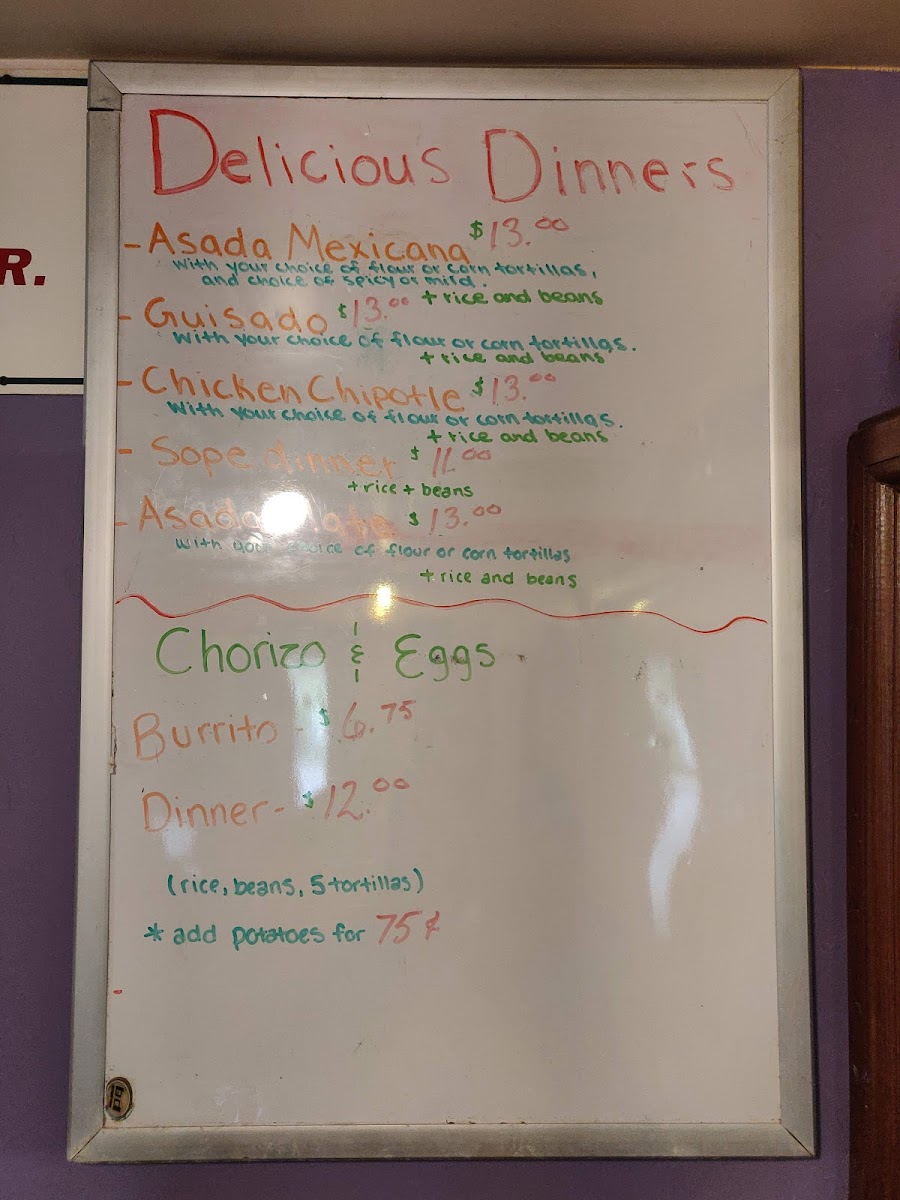 R.
Delicious Dinners
- Asada Mexicana $13.00
with your choice of flour or corn tortillas,
and choice of spicy or mild.
+ rice and beans
- Guisado $13.00
with your choice of flour or corn tortillas.
+ rice and beans
- Chicken Chipotle $13.00
with your choice of flour or corn tortillas.
+ rice and beans
- Sope dinner $11.00
+ rice + beans
- Asada Plate $13.00
with your choice of flour or corn tortillas
+ rice and beans
Chorizo & Eggs
Burrito - $6.75
Dinner - $12.00
(rice, beans, 5 tortillas)
* add potatoes for 75¢